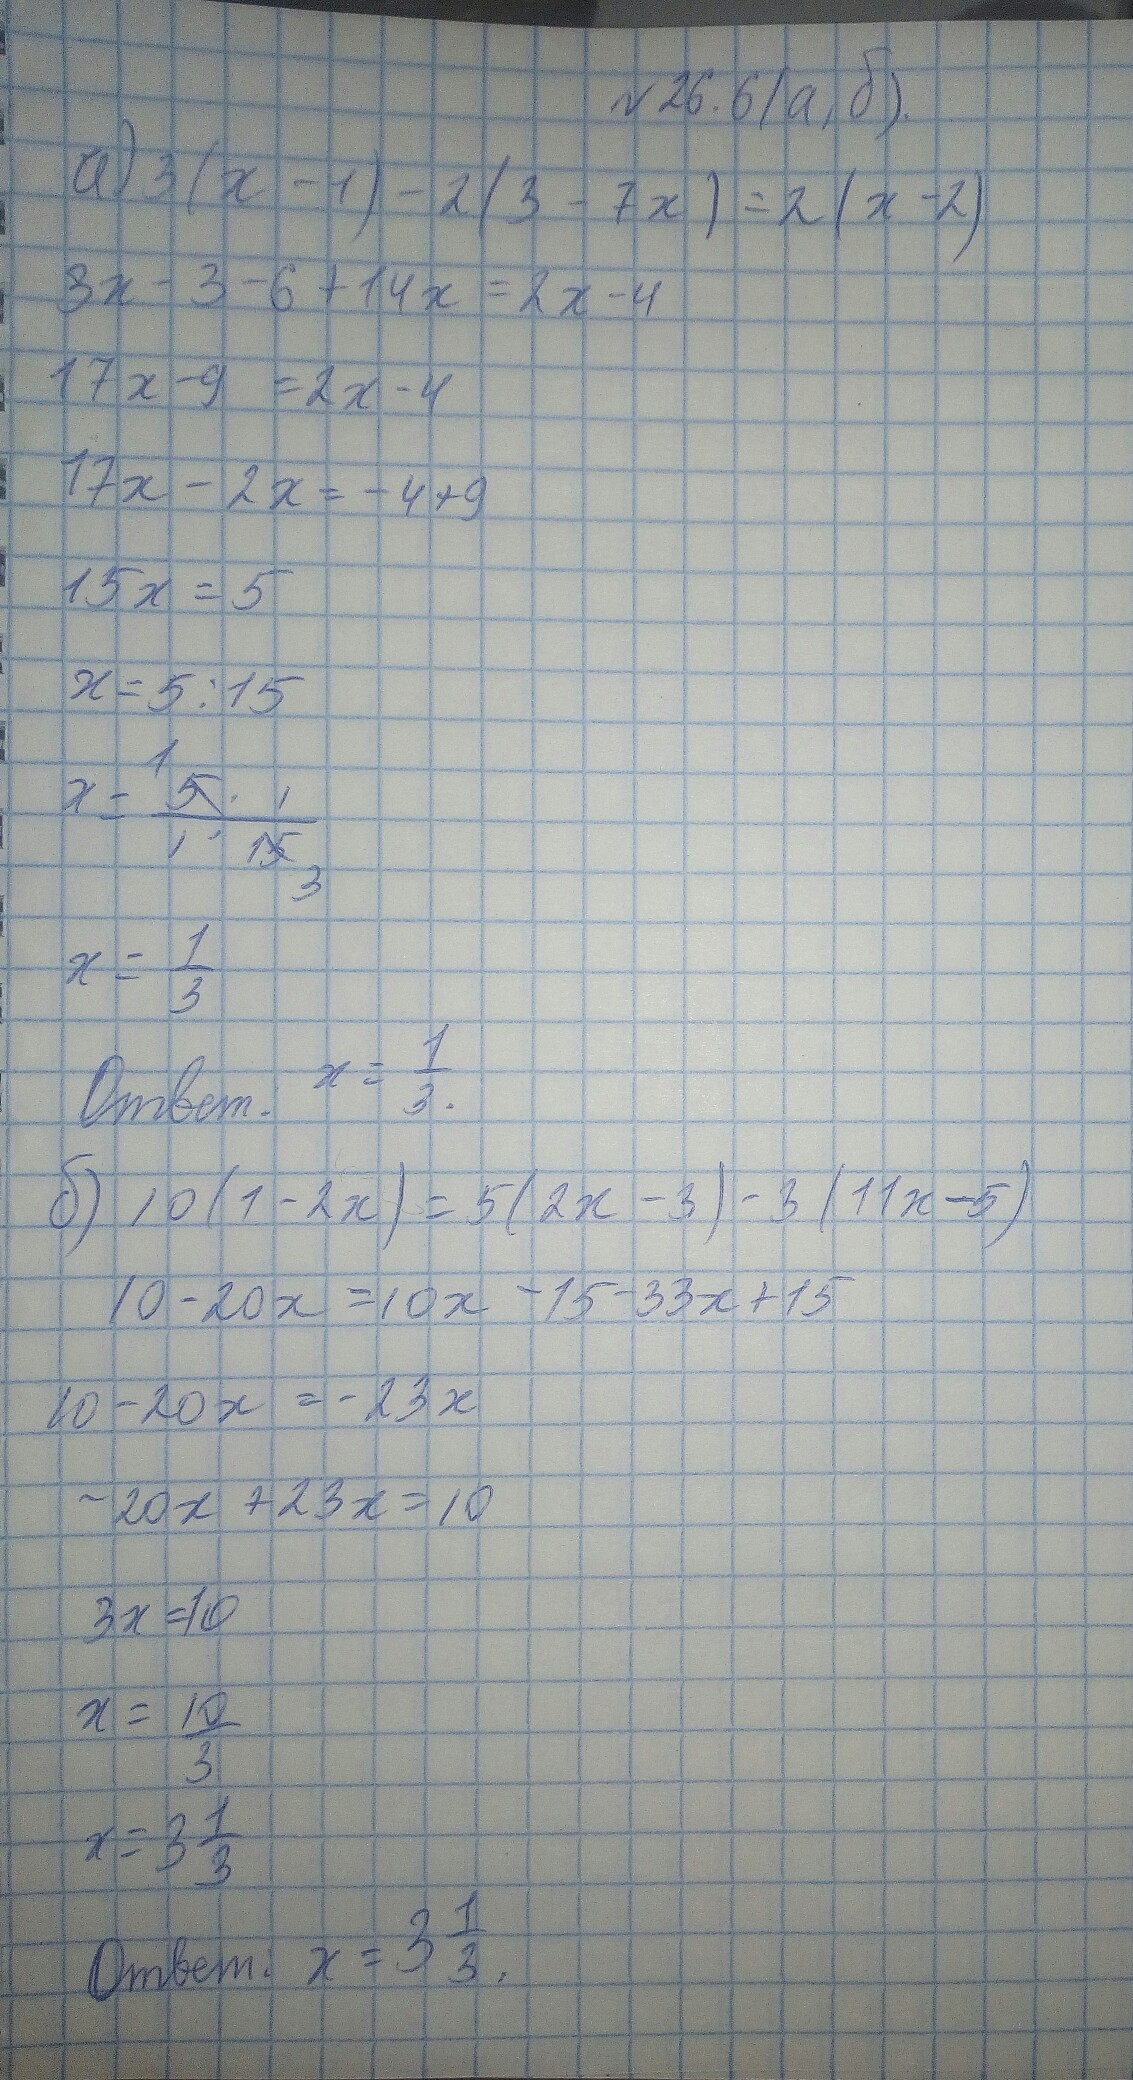 №26.6(а,б).
а) 3(x - 1) - 2(3 - 7x) = 2(x-2)
3x - 3 - 6 + 14x = 2x - 4
17x - 9 = 2x - 4
17x - 2x = -4+9
15x = 5
x = 5:15
x = ¹5 · 1 / 1 · 15 ₃
x = 1/3
Ответ: x = 1/3.
б) 10(1 - 2x) = 5(2x - 3) - 3(11x - 5)
10 - 20x = 10x - 15 - 33x + 15
10 - 20x = - 23x
-20x + 23x = 10
3x = 10
x = 10/3
x = 3 1/3
Ответ: x = 3 1/3.